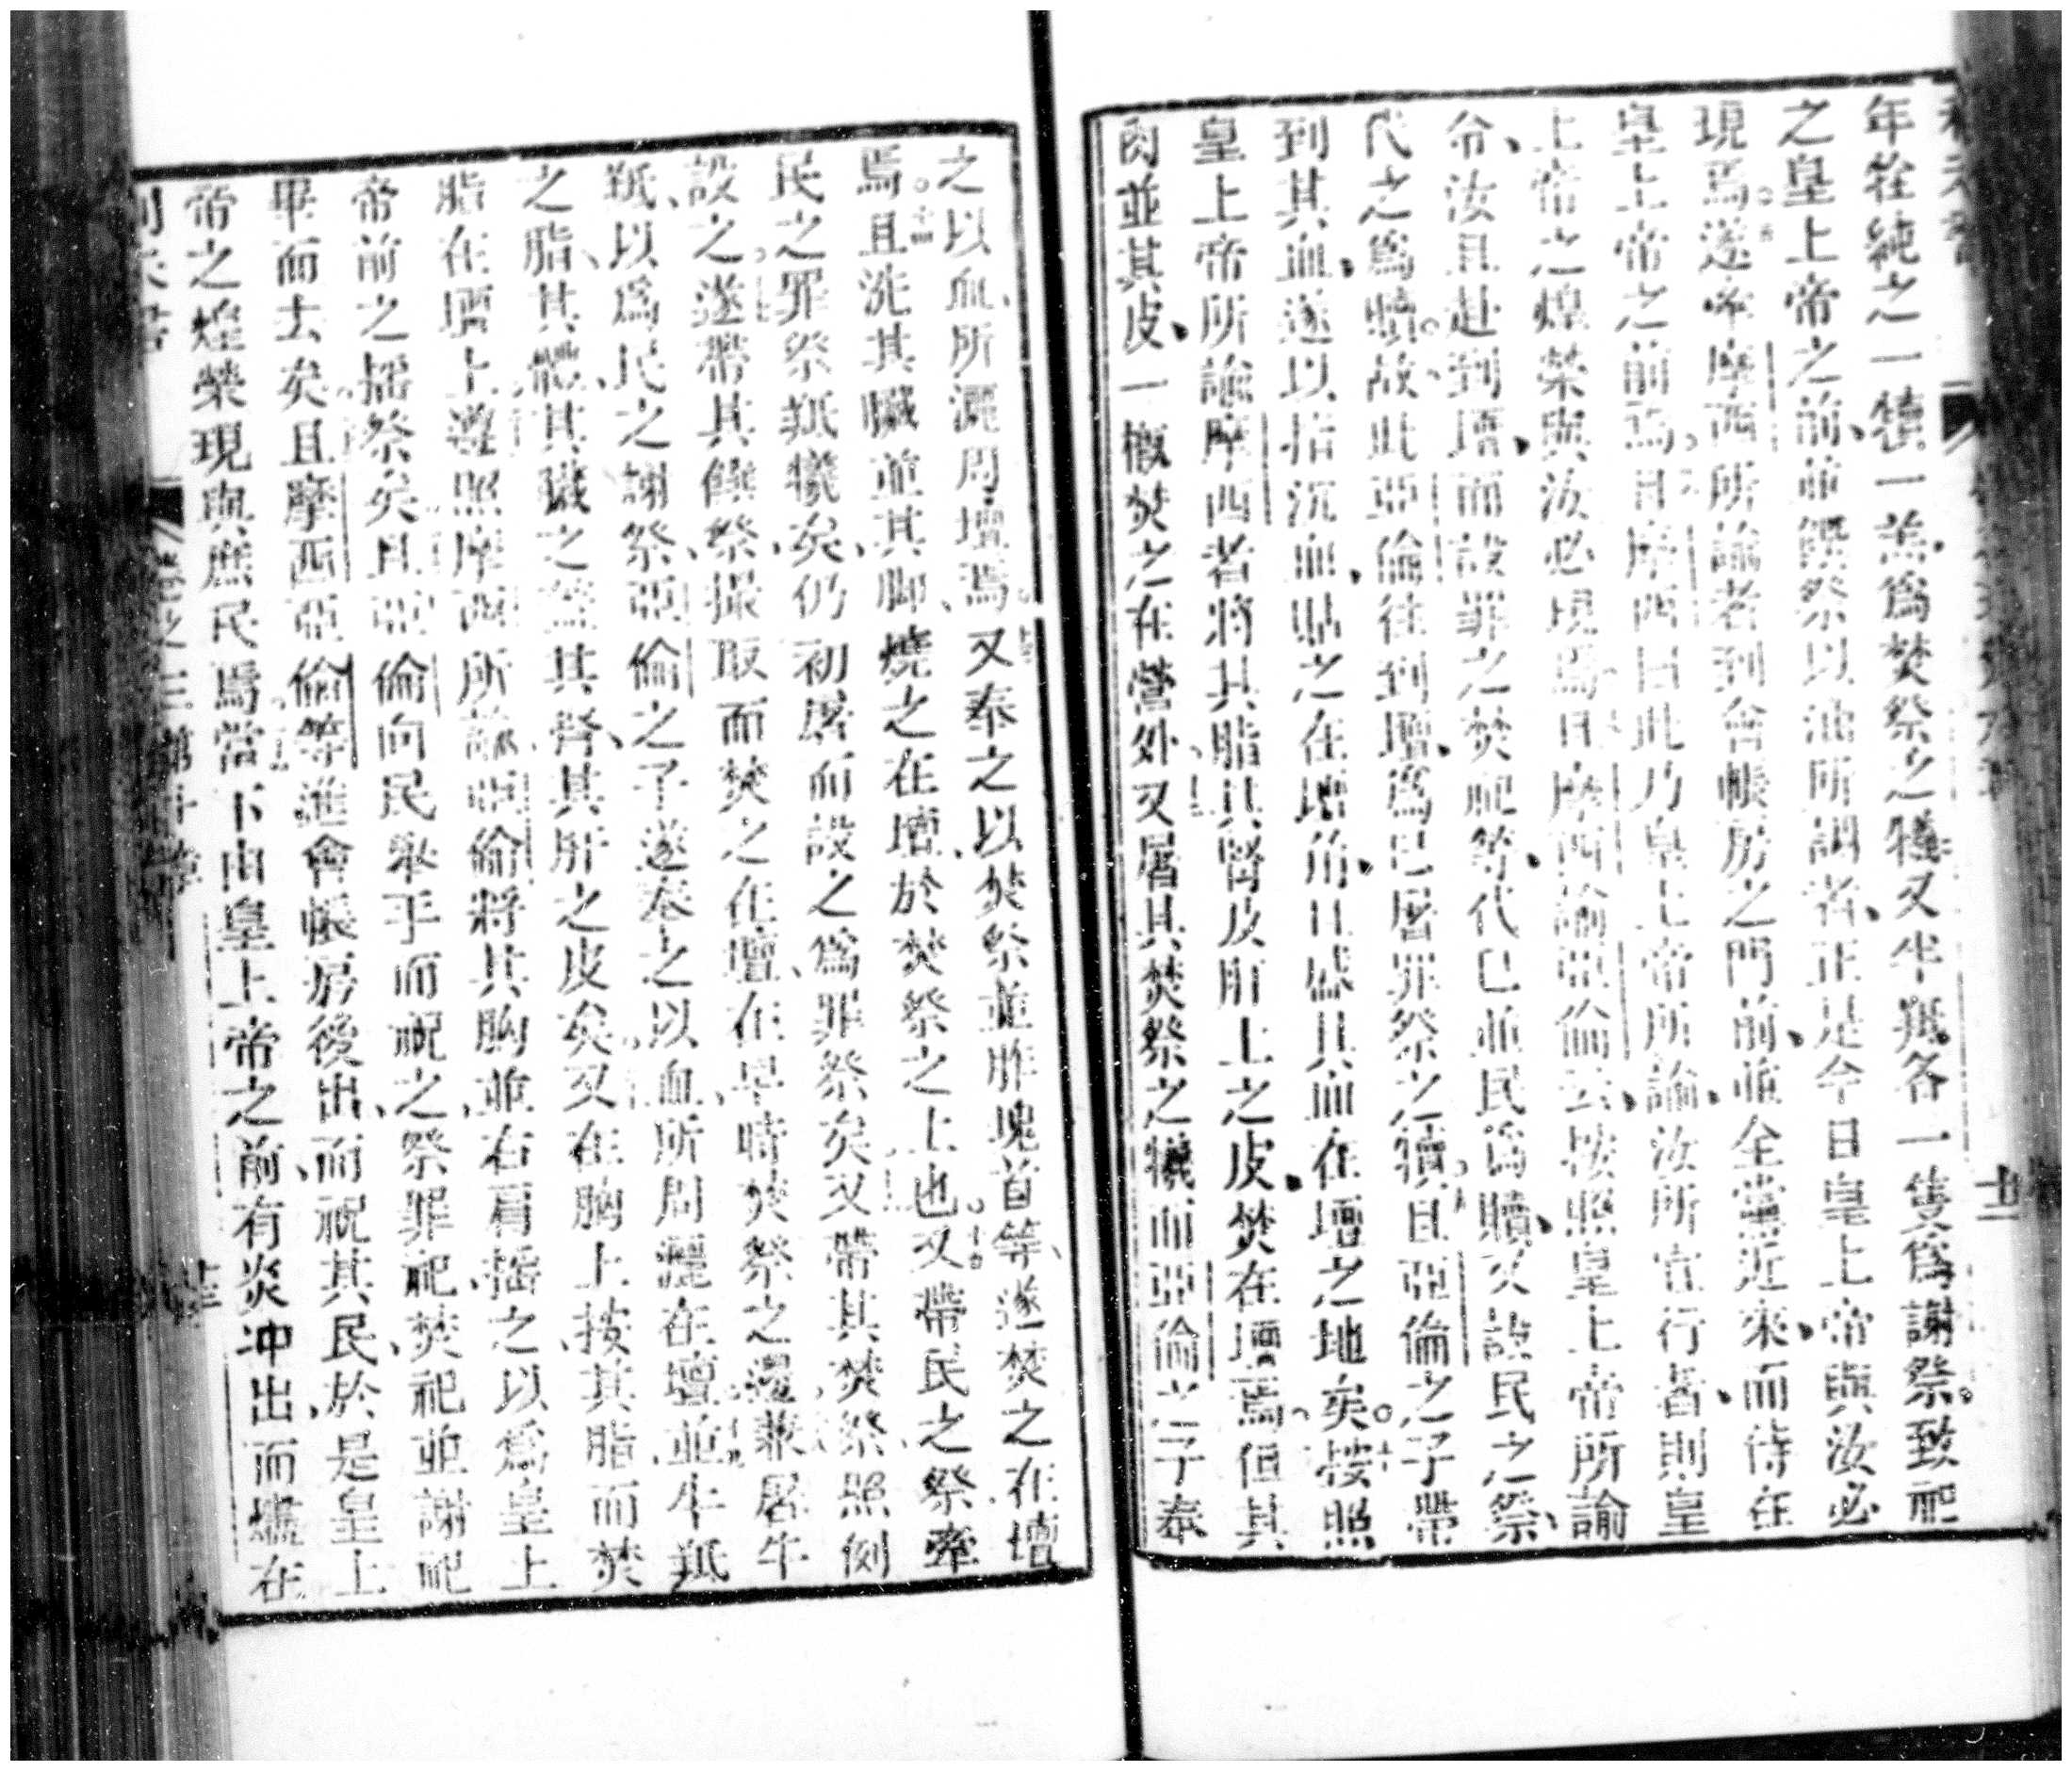 年牷純之一犢一羔爲焚祭之犧又牛羝各一隻爲謝祭致祀
之皇上帝之前並饌祭以油所調者正是今日皇上帝與汝必
現焉遂牽摩西所諭者到會帳房之門前並全黨近來而待在
皇上帝之前焉且摩西曰此乃皇上帝所諭汝所宜行者則皇
上帝之煌榮與汝必現焉且摩西諭亞倫云按照皇上帝所諭
令汝且赴到壇而設罪之焚祀等代己並民爲贖又設民之祭
代之爲贖故此亞倫往到壇爲己屠罪祭之犢且亞倫之子帶
到其血遂以指沉血貼之在壇角且盛其血在壇之地矣按照
皇上帝所諭摩西者將其脂其腎及肝上之皮焚在壇焉但其
肉並其皮一概焚之在營外又屠其焚祭之犧而亞倫之子奉
之以血所灑周壇焉又奉之以焚祭並胙塊首等遂焚之在壇
焉且洗其臟並其脚燒之在壇於焚祭之上也又帶民之祭牽
民之罪祭羝犧矣仍初屠而設之爲罪祭矣又帶其焚祭照例
設之遂帶其饌祭撮取而焚之在壇在早時焚祭之邊兼屠牛
羝以爲民之謝祭亞倫之子遂奉之以血所周灑在壇並牛羝
之脂其體其臟之蓋其腎其肝之皮矣又在胸上按其脂而焚
脂在壇上遵照摩西所諭亞倫將其胸並右肩搖之以爲皇上
帝前之搖祭矣且亞倫向民舉手而祝之祭罪祀焚祀並謝祀
畢而去矣且摩西亞倫等進會帳房後出而祝其民於是皇上
帝之煌榮現與庶民焉當下由皇上帝之前有炎冲出而燼在
卷之三 第十章